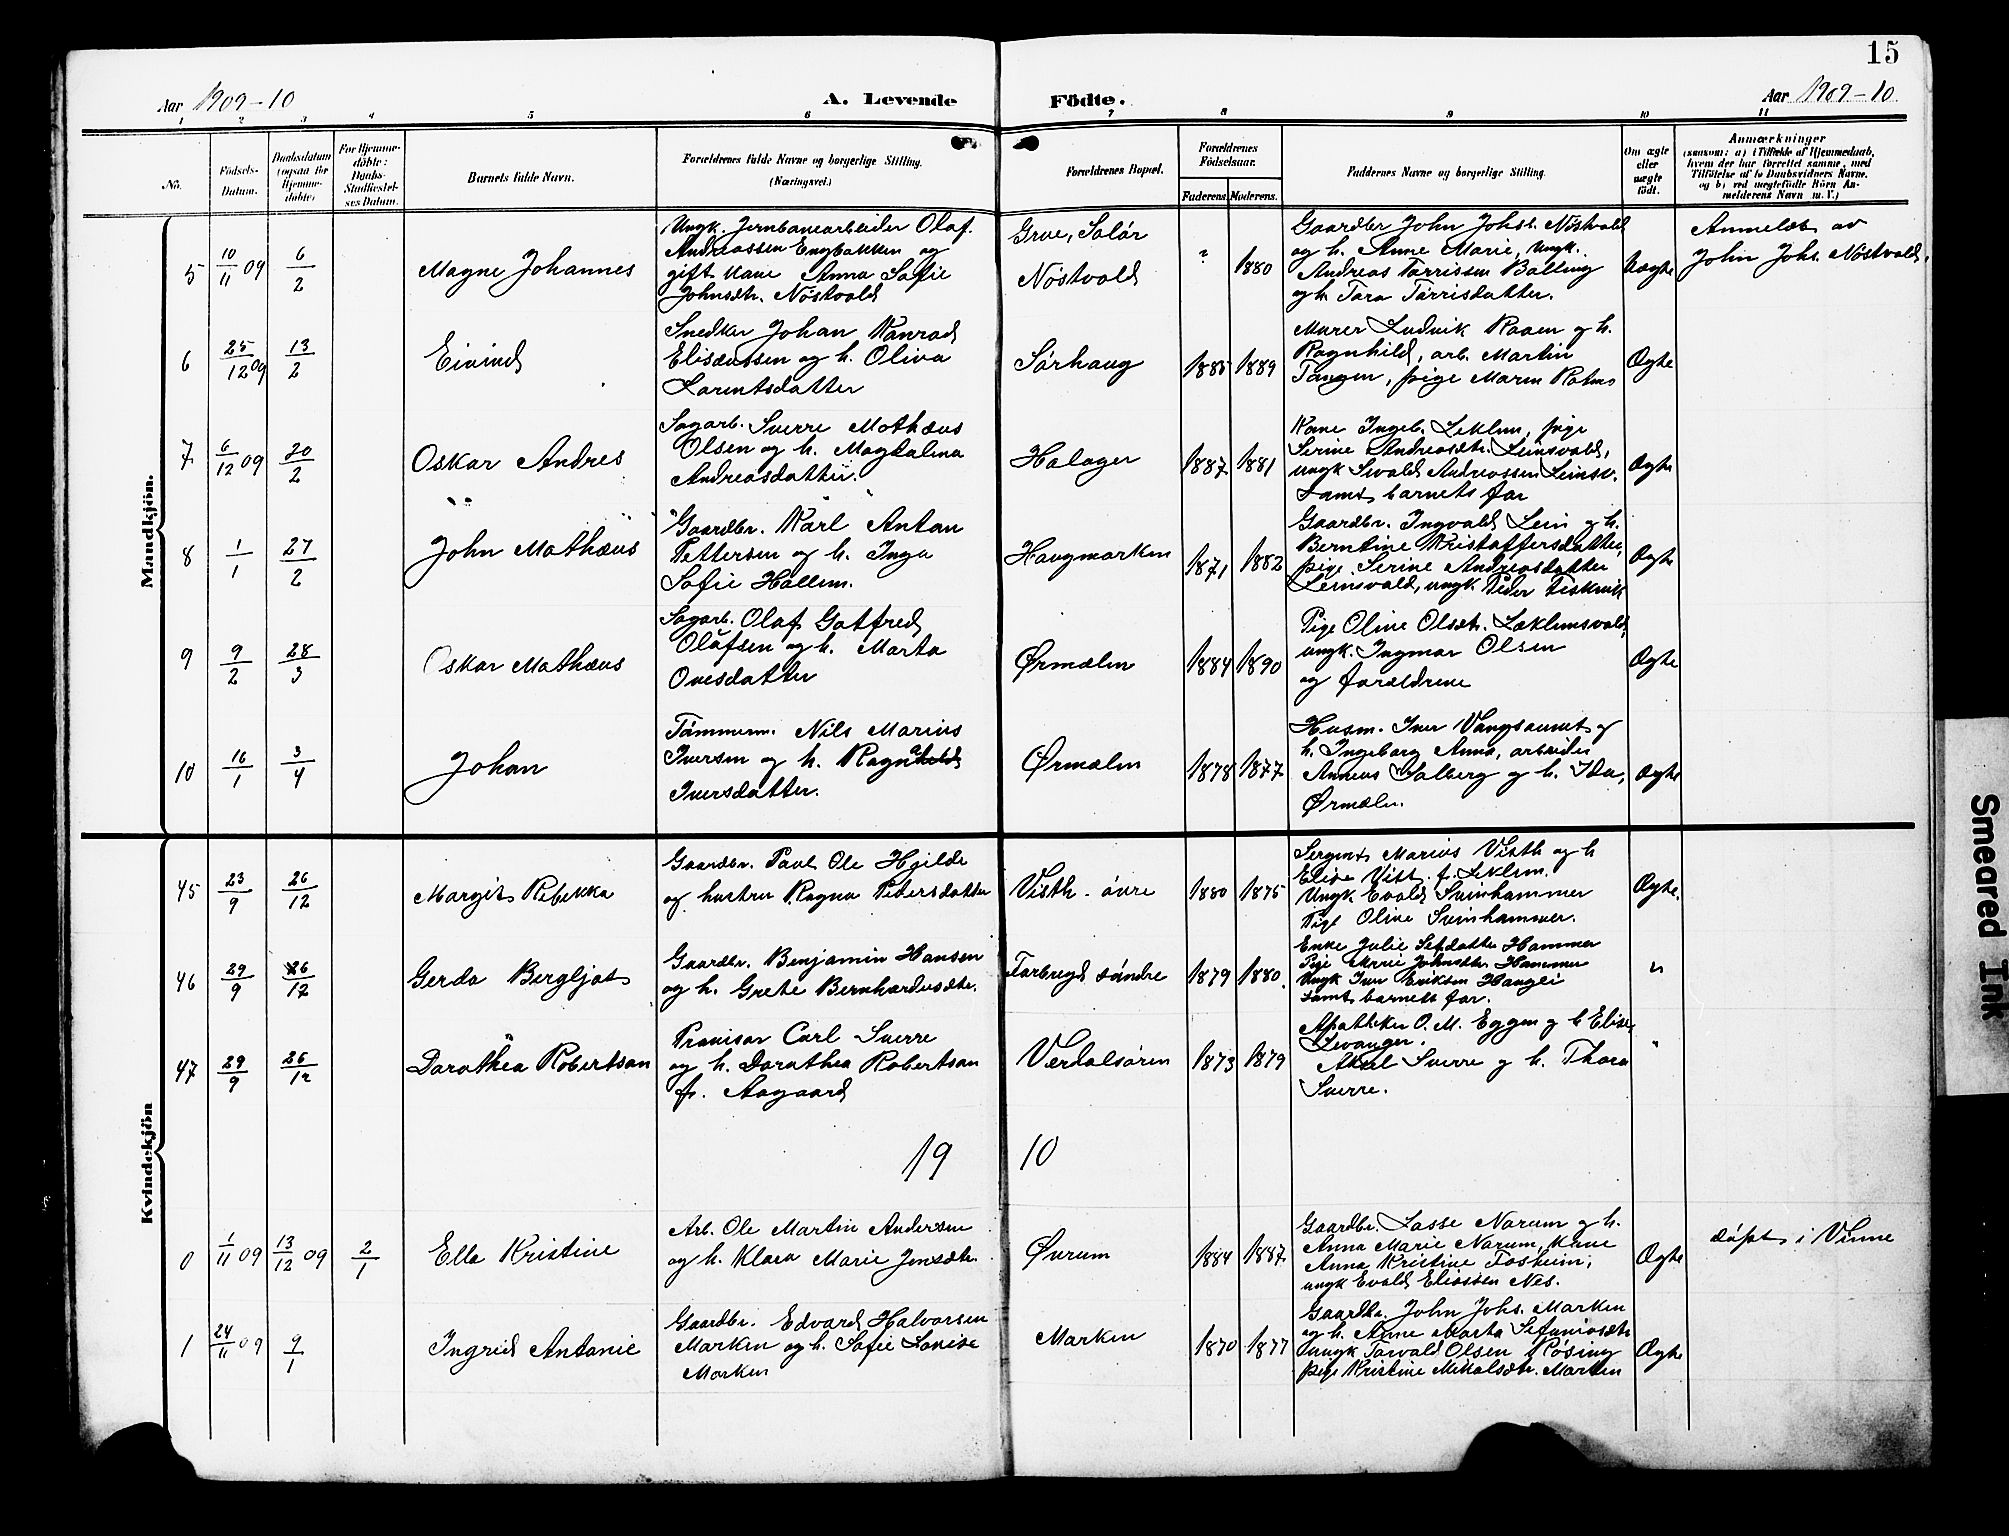 15
Aar 1909-10
A. Levende
Födte.
Aar 1909-10
1 2 3 4 5 6 7 8 9 10 11
No.
Födsels-
Datum.
Daabsdatum
(ogsaa for
Hjemme-
döbte)
For Hjemme-
döbte:
Daabs-
Stadfæstel-
ses Datum.
Barnets fulde Navn.
Forældrenes fulde Navne og borgerlige Stilling.
(Næringsvei.)
Forældrenes Bopæl.
Forældrenes
Födselsaar.
Faderens. Moderens.
Faddernes Navne og borgerlige Stilling.
Om ægte
eller
uægte
födt.
Anmærkninger
(saasom: a) i Tilfælde af Hjemmedaab,
hvem der har forrettet samme, med
Tilföielse af to Daabsvidners Navne.
og b) ved uægtefödte Börn An-
melderens Navn m. V.)
Mandkjön.
5
10/11 09
6/2
Magne Johannes
Ungk. Jernbanearbeider Olaf
Andreassen Engbakken og
gift Kane Anna Sofie
Johnsdtr. Nöstvold
Grue, Solör
Nöstvold
?
1880
Gaardbr John Johs. Nöstvold
og h. Anne Marie, ungk.
Andreas Tørrissen Balling
og h. Tora Tørrisdatter.
Uægte
Anmeldt av
John Johs. Nöstvold.
6
25/12 09
13/2
Eivind
Snedker Johan Konrad
Elisæussen og h. Oliva
Lorentsdatter
Sørhaug
1885
1889
Murer Ludvik Raaen og h.
Ragnhild, arb. Martin
Tangen, pige Maren Holmo
Ægte
7
6/12 09
20/2
Oskar Andres
Sagarb. Sverre Mathæus
Olsen og h. Magdalina
Andreasdatter.
Halager
1887
1881
Kone Ingeb. Leklem, pige
Serine Andreasdtr. Leinsvald,
ungk Sivald Andreassen Leinsv.
samt barnets far
Ægte
8
1/1
27/2
John Mathæus
Gaardbr. Karl Anton
Pettersen og h. Inga
Sofie Hallem.
Haugmarken
1871
1882
Gaardbr. Ingvald Lein og h.
Berntine Kristoffersdatter,
pige Serine Andreasdatter
Leinsvald, ungk. Peder Fiskvik
Ægte
9
9/2
28/3
Oskar Mathæus
Sagarb. Olaf Gotfred
Olufsen og h. Marta
Ovesdatter
Ørmælen
1884
1890
Pige Oline Olsdtr. Læklemsvald,
ungk. Ingmar Olsen
og forældrene
Ægte
10
16/1
3/4
Johan
Tømmerm. Nils Marius
Iversen og h. Ragna
Iversdatter.
Ørmælen
1878
1877
Husm. Iver Vangsaunet og
h. Ingeborg Anna, arbeider
Anneus Salberg og h. Ida,
Ørmælen.
Ægte
Kvindekjön
45
23/9
26/12
Margit Rebekka
Gaardbr. Paul Ole Hjelde
og hustru Ragna Pedersdatter
Visth - övre
1880
1875
Sergent Marius Visth og h
Elise Vist. f. Leklem.
Ungk Evald Svinhammer
Pige Oline Svinhammer.
Ægte.
46
29/9
26/12
Gerda Bergljot
Gaardbr. Benjamin Hansen
og h. Grete Bernhardusdtr.
Forbregd söndre
1879
1880.
Enke Julie Sefdatter Hammer
Pige Marie Johnsdtr Hammer
Ungk Iver Eriksen Haugli
samt barnets far.
"
47
29/9
26/12
Dorothea Robertson
Provisor Carl Sverre
og h. Dorothea Robertson
f. Aagaard
Værdalsören
1873
1879
Apotheker O. M. Eggen og h Elise,
Levanger.
Aksel Sverre og h. Thora
Sverre.
"
19 10
0
1/11 09
13/12 09
2/1
Ella Kristine
Arb. Ole Martin Andersen
og h. Klara Marie Jensdtr.
Øvrum
1884
1887
Gaardbr. Lasse Narum og h.
Anna Marie Narum, kone
Anna Kristine Fosheim,
ungk Evald Eliassen Nes.
Ægte
döpt i Vinne
1
24/11 09
9/1
Ingrid Antonie
Gaardbr. Edvard Halvorsen
Marken og h. Sofie Lovise
Marken
Marken
1870
1877
Gaardbr. John Johs. Marken
og h. Anne Marta Stefaniasdtr
Ungk Torvald Olsen Røsing
pige Kristine Mikalsdtr. Marken
Ægte
Smeared Ink